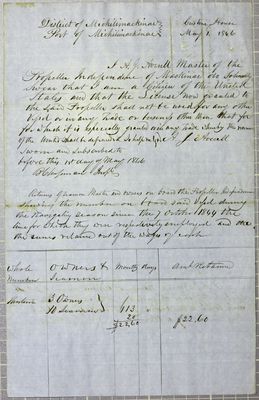 District of Michilimackinac Custom House
Port of Michilimackinac May 1. 1846
I A. J. Averill Master of the
Propeller Independence of Mackinac do Solemnly
Swear that I am a Citizen of the United
States and that the License now granted to
the Said Propeller shall not be used for any other
Vessel or in any have or business than that for
for which it is specially granted
Sworn and Subscribed
before this 1st day of May 1846
Returns Seamen Master and owners on board the Propeller Independence
Shewing the number on board said Vessel during
the Navigating Season since the 7 October 1844 the
time for which they were respectively employed and
the sums retained out of the wages of each
Whole Number Owners & Seamen Months Days Amt Retained
3 Owners
10 Seamen 113
20
$22.60 $22.60